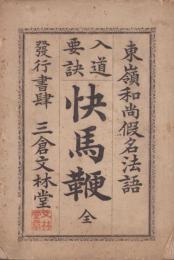 東嶺和尚假名法語
入道
要訣
快馬鞭 全
發行書肆 三倉文林堂